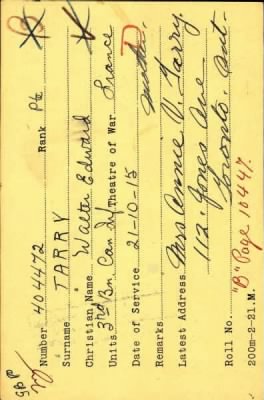 Number 404472 Rank Pte
Surname TARRY
Christian Name Walter Edward
Units 3rd Bn. Can Inf Theatre of War France
Date of Service 21-10-15
Remarks D
Latest Address Mrs Annie V. Tarry
112 Jones Ave
Toronto. Ont.
Roll No. "B" Page 10447.
200m-2-21.M.